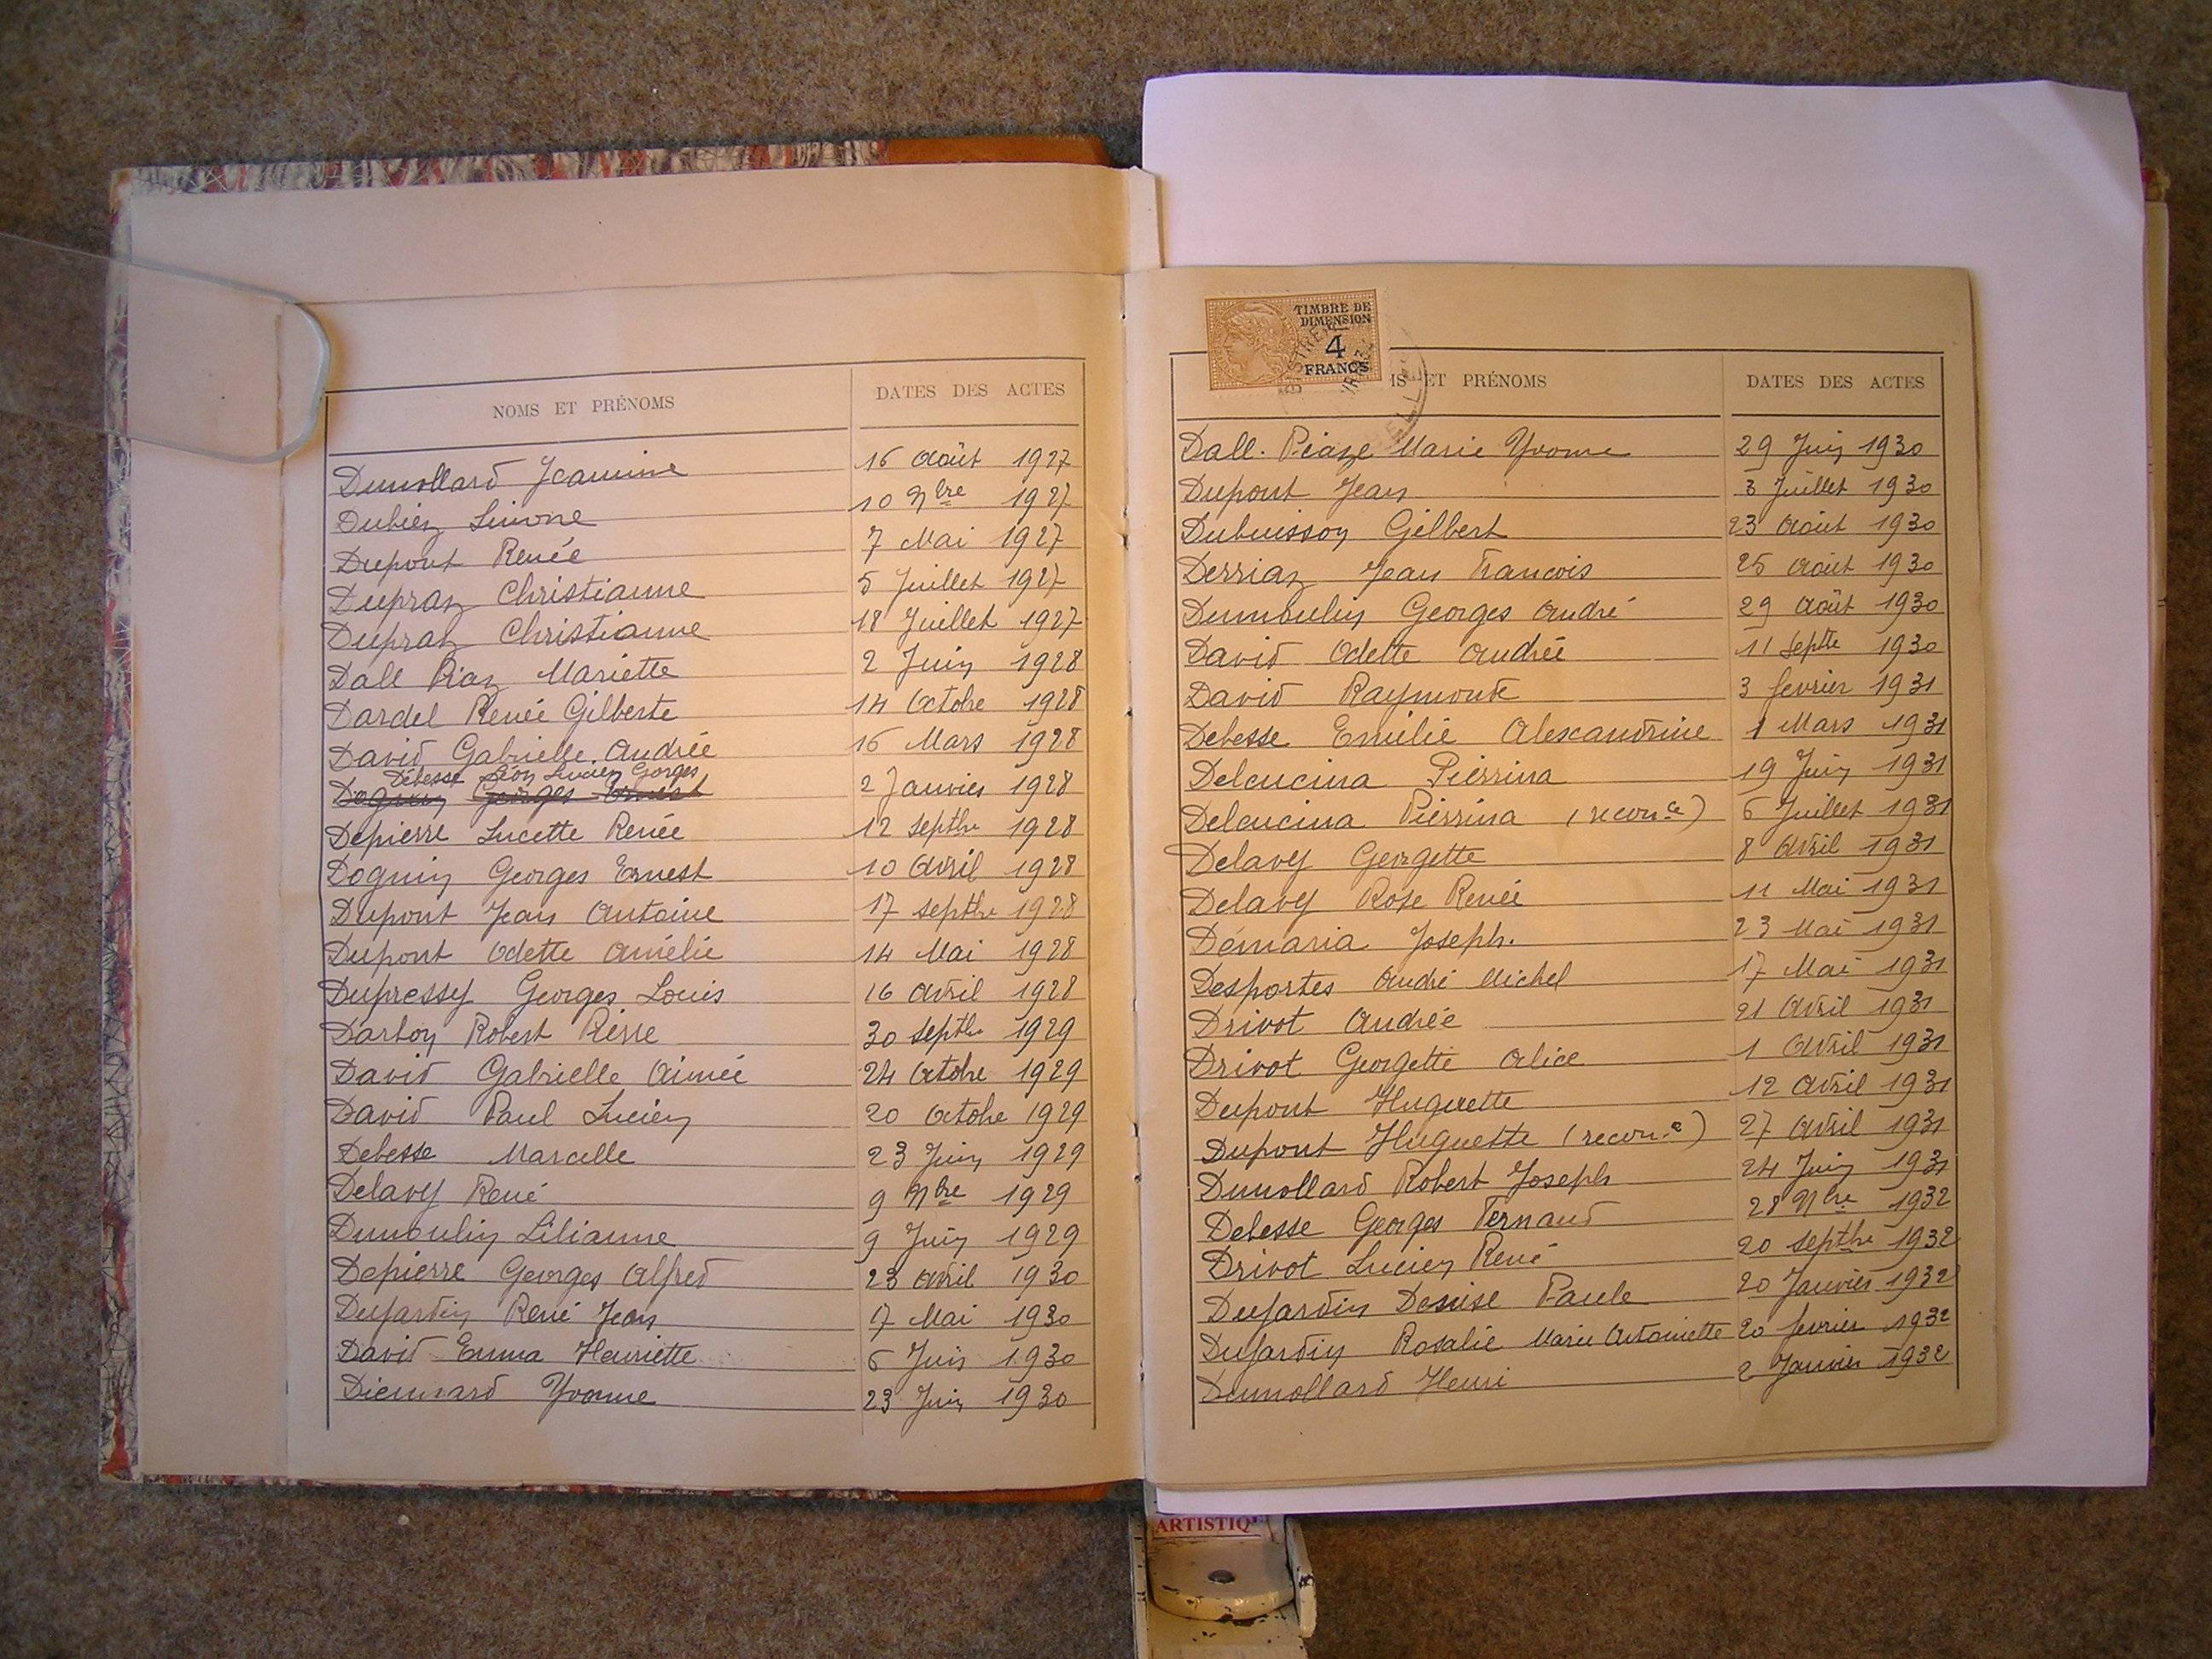 NOMS ET PRÉNOMS DATES DES ACTES
Dumollard Jeannine 16 Août 1927
Dubien Simone 10 9bre 1927
Dupont Renée 7 Mai 1927
Dupraz Christianne 5 Juillet 1927
Dupraz Christianne 18 Juillet 1927
Dall Piaz Mariette 2 Juin 1928
Dardel Renée Gilberte 14 Octobre 1928
David Gabrielle Andrée 16 Mars 1928
Debesse Léon Lucien Georges
Doguin Georges Ernest 2 Janvier 1928
Depierre Lucette Renée 12 septbre 1928
Doguin Georges Ernest 10 Avril 1928
Dupont Jean Antoine 17 septbre 1928
Dupont Odette Amélie 14 Mai 1928
Dupressy Georges Louis 16 Avril 1928
Darbon Robert Pierre 30 septbre 1929
David Gabrielle Aimée 24 Octobre 1929
David Paul Lucien 20 Octobre 1929
Debesse Marcelle 23 Juin 1929
Delavy René 9 9bre 1929
Dumoulin Lilianne 9 Juin 1929
Depierre Georges Alfred 23 Avril 1930
Dujardin René Jean 17 Mai 1930
David Emma Henriette 6 Juin 1930
Diennard Yvonne 23 Juin 1930
TIMBRE DE
DIMENSION
4
FRANCS
MS ET PRÉNOMS DATES DES ACTES
Dall. Piaze Marie Yvonne 29 Juin 1930
Dupont Jean 3 Juillet 1930
Dubuisson Gilbert 23 Août 1930
Derriaz Jean Francois 25 Août 1930
Dumoulin Georges André 29 Août 1930
David Odette Andrée 11 Septbre 1930
David Raymonde 3 fevrier 1931
Debesse Emilie Alexandrine 1 Mars 1931
Delcucina Pierrina 19 Juin 1931
Delcucina Pierrina (reconce) 6 Juillet 1931
Delavy Georgette 8 Avril 1931
Delavy Rose Renée 11 Mai 1931
Démaria Joseph. 23 Mai 1931
Desportes André Michel 17 Mai 1931
Drivot Andrée 21 Avril 1931
Drivot Georgette Alice 1 Avril 1931
Dupont Huguette 12 Avril 1931
Dupont Huguette (reconce) 27 Avril 1931
Dumollard Robert Joseph 24 Juin 1931
Debesse Georges Fernand 28 9bre 1932
Drivot Lucien René 20 septbre 1932
Dujardin Denise Paule 20 Janvier 1932
Dujardin Rosalie Marie Antoinette 20 fevrier 1932
Dumollard Henri 2 Janvier 1932
ARTISTIQ